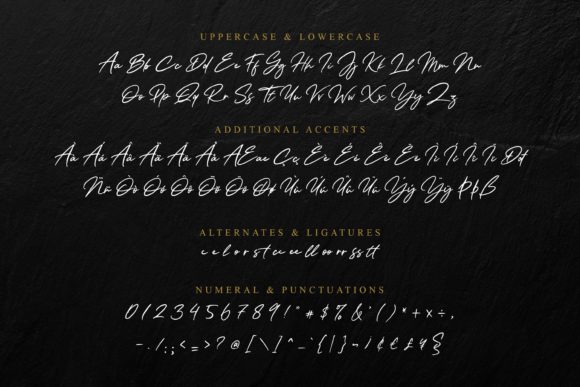 UPPERCASE & LOWERCASE
Aa Bb Cc Dd Ee Ff Gg Hh Ii Jj Kk Ll Mm Nn
Oo Pp Qq Rr Ss Tt Uu Vv Ww Xx Yy Zz
ADDITIONAL ACCENTS
Àà Áá Ââ Ãã Ää Åå ÆEae Çç Èè Éé Êê Ëë Ìì Íí Îî Ïï Ðð
Ññ Òò Óó Ôô Õõ Öö Øø Ùù Úú Ûû Üü Ýý Ÿÿ Þþß
ALTERNATES & LIGATURES
NUMERAL & PUNCTUATIONS
0 1 2 3 4 5 6 7 8 9 ! " # $ % & ' ( ) * + × ÷ ,
- . / : ; < = > ? @ [ \ ] ^ _ ` { | } ~ ¡ ¢ £ ¥ §